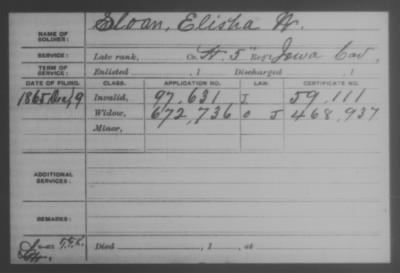 NAME OF SOLDIER: Sloan, Elisha W.
SERVICE: Late rank, Co. H. 5" Reg't Iowa Cav.
TERM OF SERVICE: Enlisted , 1 Discharged , 1
DATE OF FILING. CLASS. APPLICATION NO. LAW. CERTIFICATE NO.
1865 Dec. 19 Invalid, 97,631 I 59,111
Widow, 672,736 O I 468,937
Minor,
ADDITIONAL SERVICES:
REMARKS:
Died , 1 , at